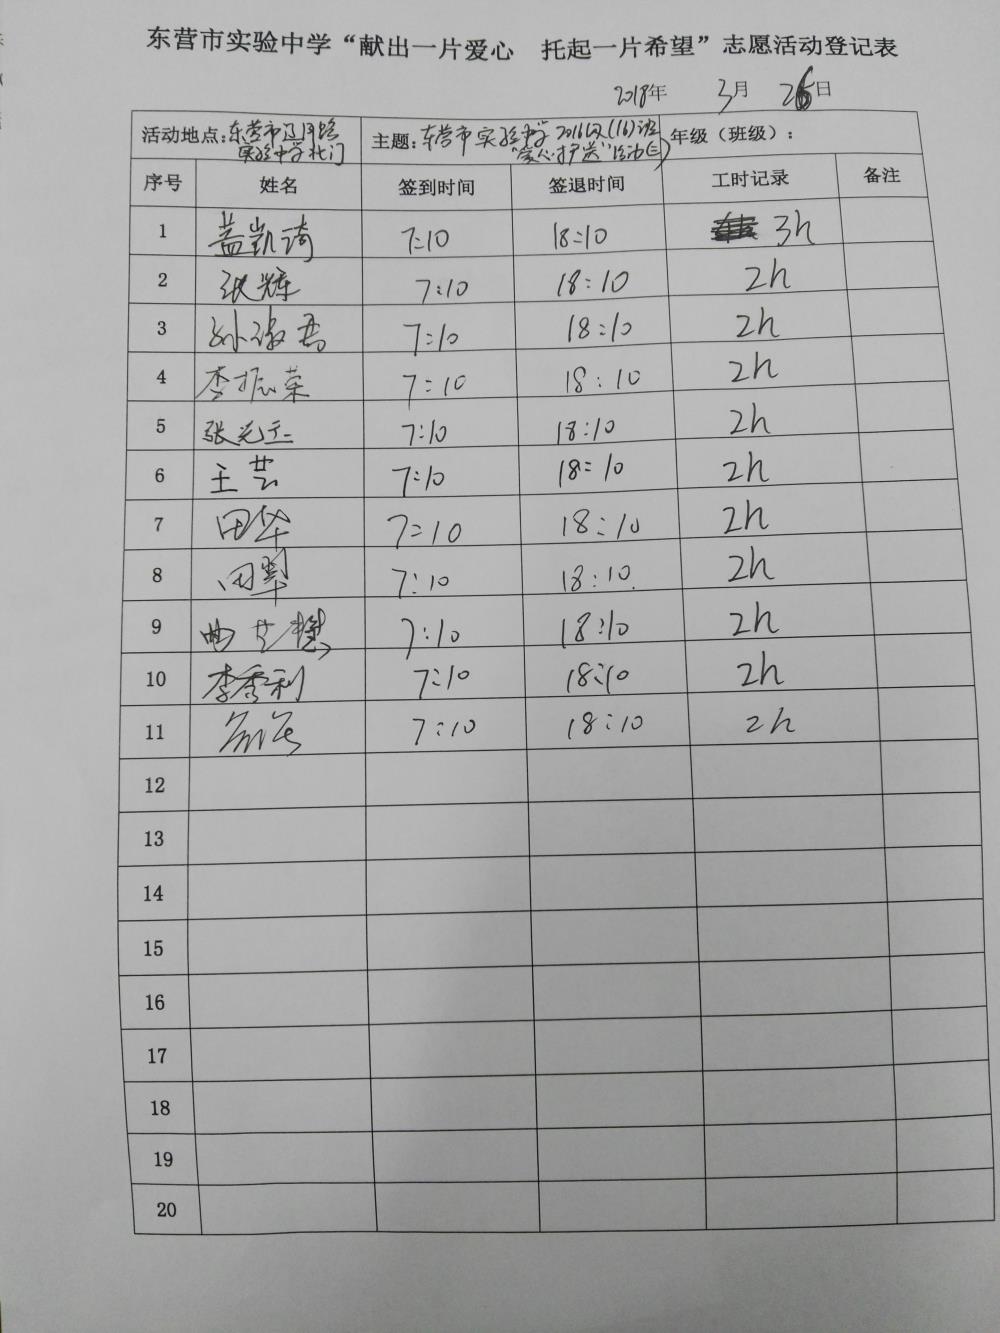 东营市实验中学“献出一片爱心　托起一片希望”志愿活动登记表
2018年 3月 26日
活动地点:东营市辽河路实验中学北门 主题:东营市实验中学2016级(16)班 年级（班级）:
序号 姓名 签到时间 签退时间 工时记录 备注
1 盖凯琦 7:10 18:10 3h
2 张辉 7:10 18:10 2h
3 7:10 18:10 2h
4 李振荣 7:10 18:10 2h
5 7:10 18:10 2h
6 王芸 7:10 18:10 2h
7 田华 7:10 18:10 2h
8 田 7:10 18:10 2h
9 曲 7:10 18:10 2h
10 李秀利 7:10 18:10 2h
11 7:10 18:10 2h
12
13
14
15
16
17
18
19
20